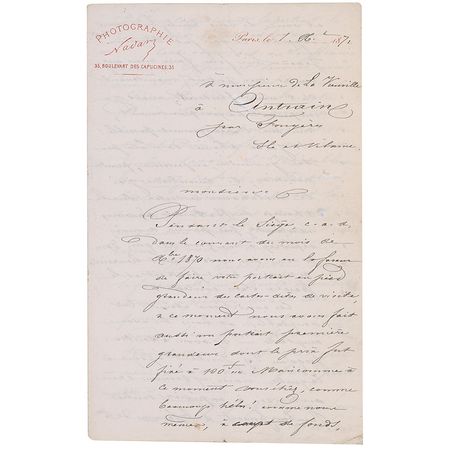 PHOTOGRAPHIE
Nadar
35, BOULEVART DES CAPUCINES, 35
Paris le 1 Xbre 1871
à monsieur de La
à Antrain
par Fougères
Ile et Vilaine
monsieur
Pendant le Siège, c. a. d.
dans le courant du mois de
Xbre 1870 nous avons eu la faveur
de faire votre portrait en pied
grandeur des cartes dites de visite
à ce moment nous avons fait
aussi un portrait première
grandeur dont le prix fut
fixé à 100f
ce moment vous étiez, comme
beaucoup hélas! comme nous
mêmes, à court de fonds,